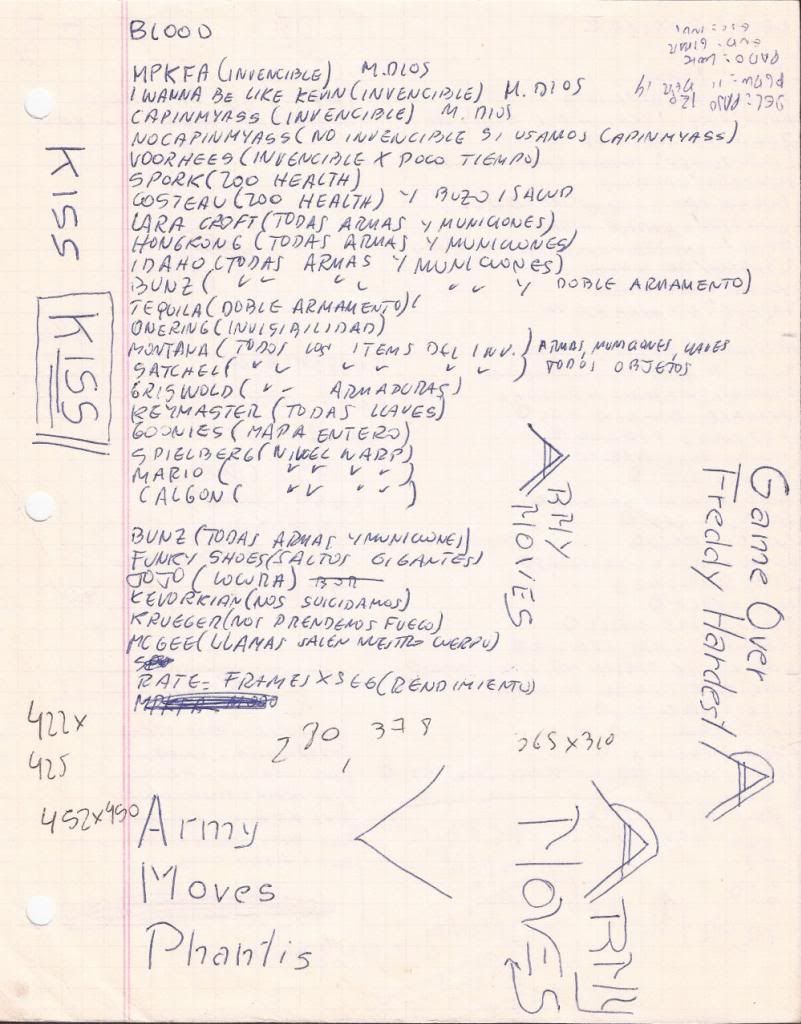 BLOOD
MPKFA (INVENCIBLE) M. DIOS
I WANNA BE LIKE KEVIN (INVENCIBLE) M. DIOS
CAPINMYASS (INVENCIBLE) M. DIOS
NOCAPINMYASS (NO INVENCIBLE SI USAMOS CAPINMYASS)
VOORHEES (INVENCIBLE X POCO TIEMPO)
SPORK (200 HEALTH)
COSTEAU (200 HEALTH) Y BUZO / SALUD
LARA CROFT (TODAS ARMAS Y MUNICIONES)
HONGKONG (TODAS ARMAS Y MUNICIONES)
IDAHO (TODAS ARMAS Y MUNICIONES)
BUNZ ( " " " Y DOBLE ARMAMENTO)
TEQUILA (DOBLE ARMAMENTO) (
ONERING (INVISIBILIDAD)
MONTANA (TODOS LOS ITEMS DEL INV.) ARMAS, MUNICIONES, LLAVES
SATCHEL ( " " " " ) TODOS OBJETOS
GRISWOLD ( " ARMADURAS)
KEYMASTER (TODAS LLAVES)
GOONIES (MAPA ENTERO)
SPIELBERG (NIVEL WARP)
MARIO ( " " )
CALGON ( " )
BUNZ (TODAS ARMAS Y MUNICIONES)
FUNKY SHOES (SALTOS GIGANTES)
JOJO (LOCURA)
KEVORKIAN (NOS SUICIDAMOS)
KRUEGER (NOS PRENDEMOS FUEGO)
MCGEE (LLAMAS SALEN NUESTRO CUERPO)
RATE = FRAMES X SEG (RENDIMIENTO)
KISS
KISS
ARMY
MOVES
Game Over
Freddy Hardest
A
422x
425
452x450
280, 378
265x310
Army
Moves
Phantis
ARMY
MOVES